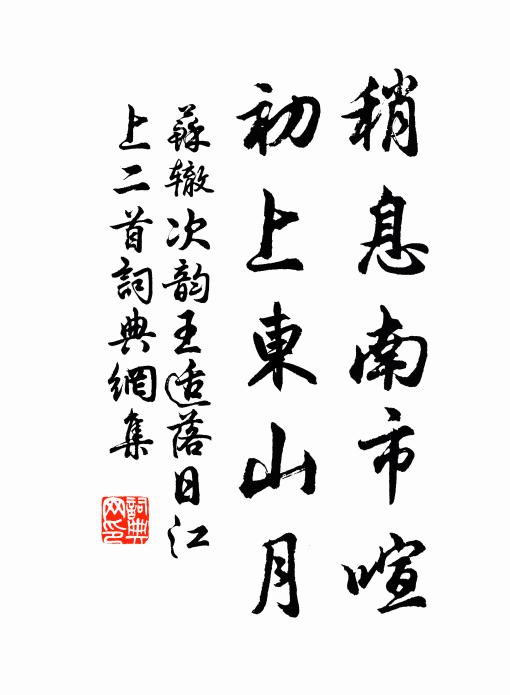 稍息南市喧
初上東山月
蘇辙次韵王适落日江
上二首詞典網集
詞典网印